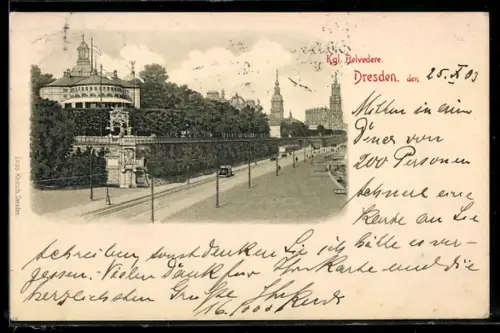 Kgl. Belvedere.
Dresden, den 25. X 03
Mitten in einem
Diner von
200 Personen
schnell eine
Karte an Sie
schreiben, sonst denken Sie ich hätte es ver-
gessen. Vielen Dank für Ihre Karte und die
herzlichsten Grüße Ihr
16.000!